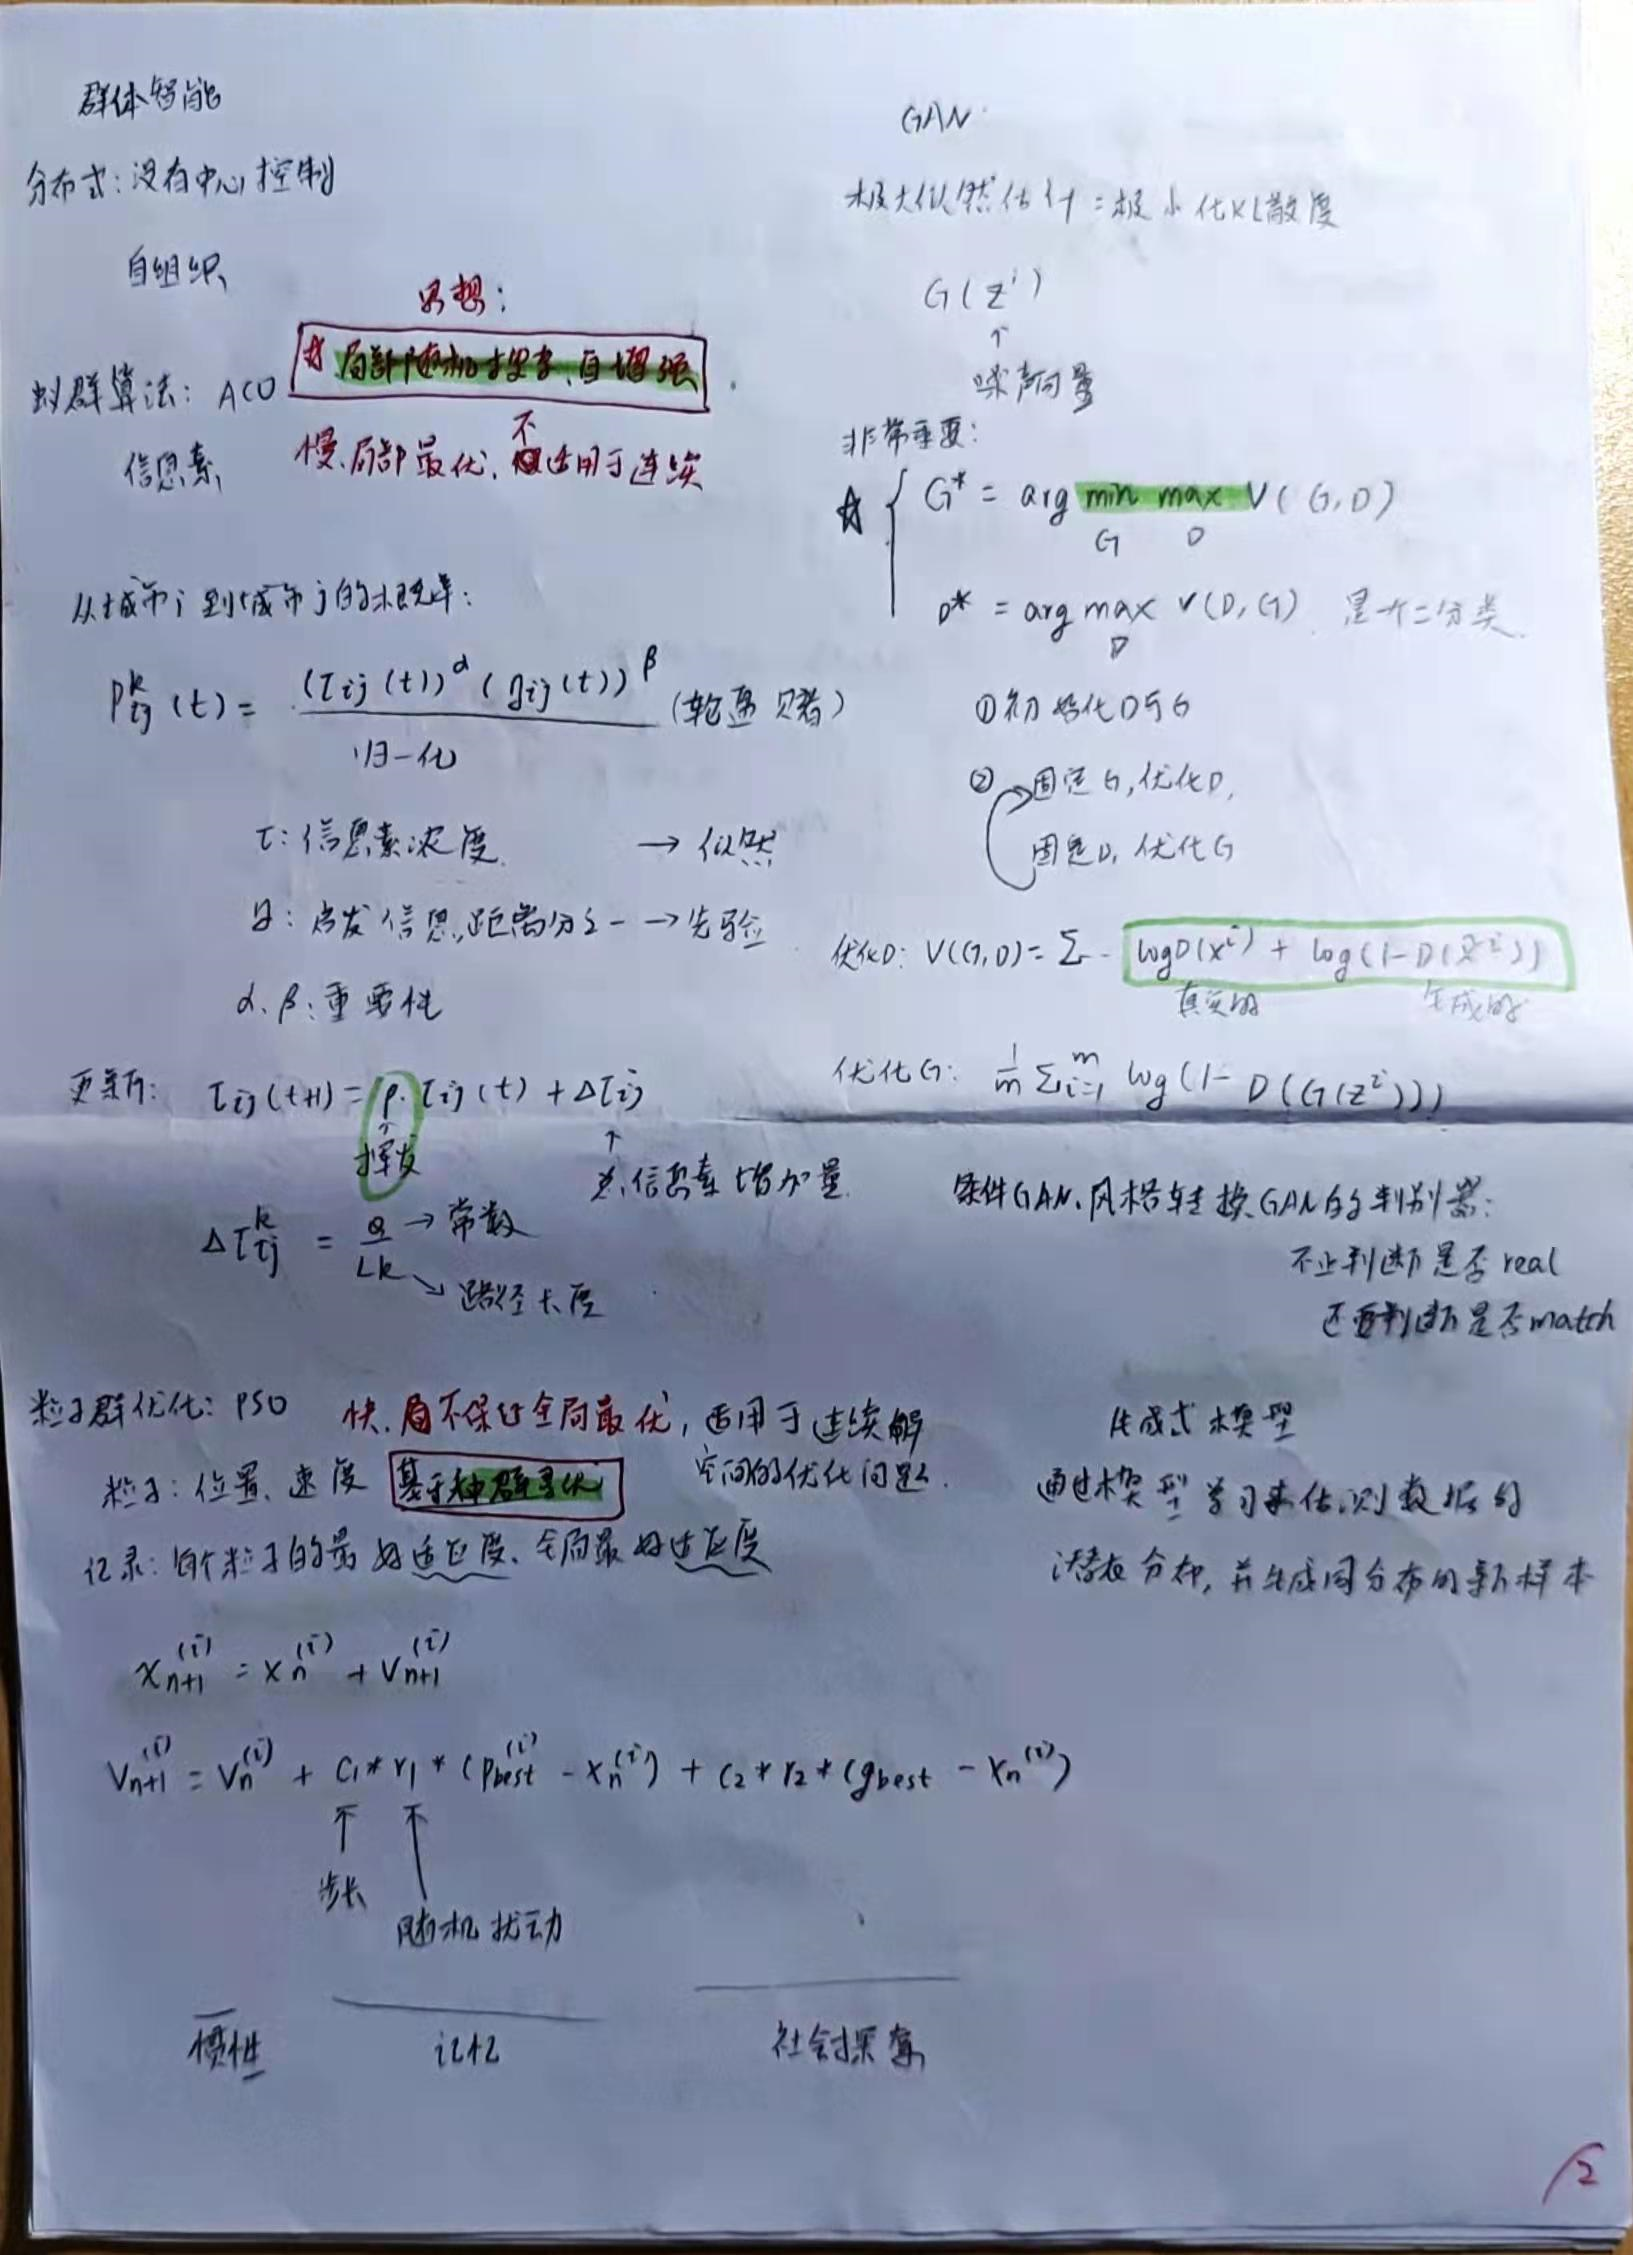 群体智能
分布式：没有中心控制
自组织
思想：
蚁群算法：ACO ☆局部随机搜索、自增强
信息素 慢、局部最优、不适用于连续
从城市i到城市j的概率：
P_{ij}^{k}(t) = (τ_{ij}(t))^α (η_{ij}(t))^β / 归一化 (轮盘赌)
τ：信息素浓度 → 似然
η：启发信息，距离分之一 → 先验
α、β：重要性
更新：τ_{ij}(t+1) = ρ·τ_{ij}(t) + Δτ_{ij}
↑挥发 ↑信息素增加量
Δτ_{ij}^{k} = Q/L_k Q → 常数
L_k → 路径长度
粒子群优化：PSO 快、不保证全局最优，适用于连续解
空间的优化问题
粒子：位置、速度 基于种群寻优
记录：每个粒子的最好适应度、全局最好适应度
x_{n+1}^{(i)} = x_n^{(i)} + v_{n+1}^{(i)}
v_{n+1}^{(i)} = v_n^{(i)} + c_1*r_1*(p_{best}^{(i)} - x_n^{(i)}) + c_2*r_2*(g_{best} - x_n^{(i)})
↑步长 ↑随机扰动
惯性 记忆 社会探索
GAN
极大似然估计=极小化KL散度
G(z^i)
↑
噪声向量
非常重要：
☆ { G* = arg min_G max_D V(G,D)
D* = arg max_D V(D,G) 是个二分类
①初始化D与G
② 固定G，优化D，
固定D，优化G
优化D：V(G,D) = Σ logD(x^i) + log(1-D(x̃^i))
真实的 生成的
优化G：1/m Σ_{i=1}^{m} log(1-D(G(z^i)))
条件GAN、风格转换GAN的判别器：
不止判断是否real
还要判断是否match
生成式模型
通过模型学习来估测数据的
潜在分布，并生成同分布的新样本
12